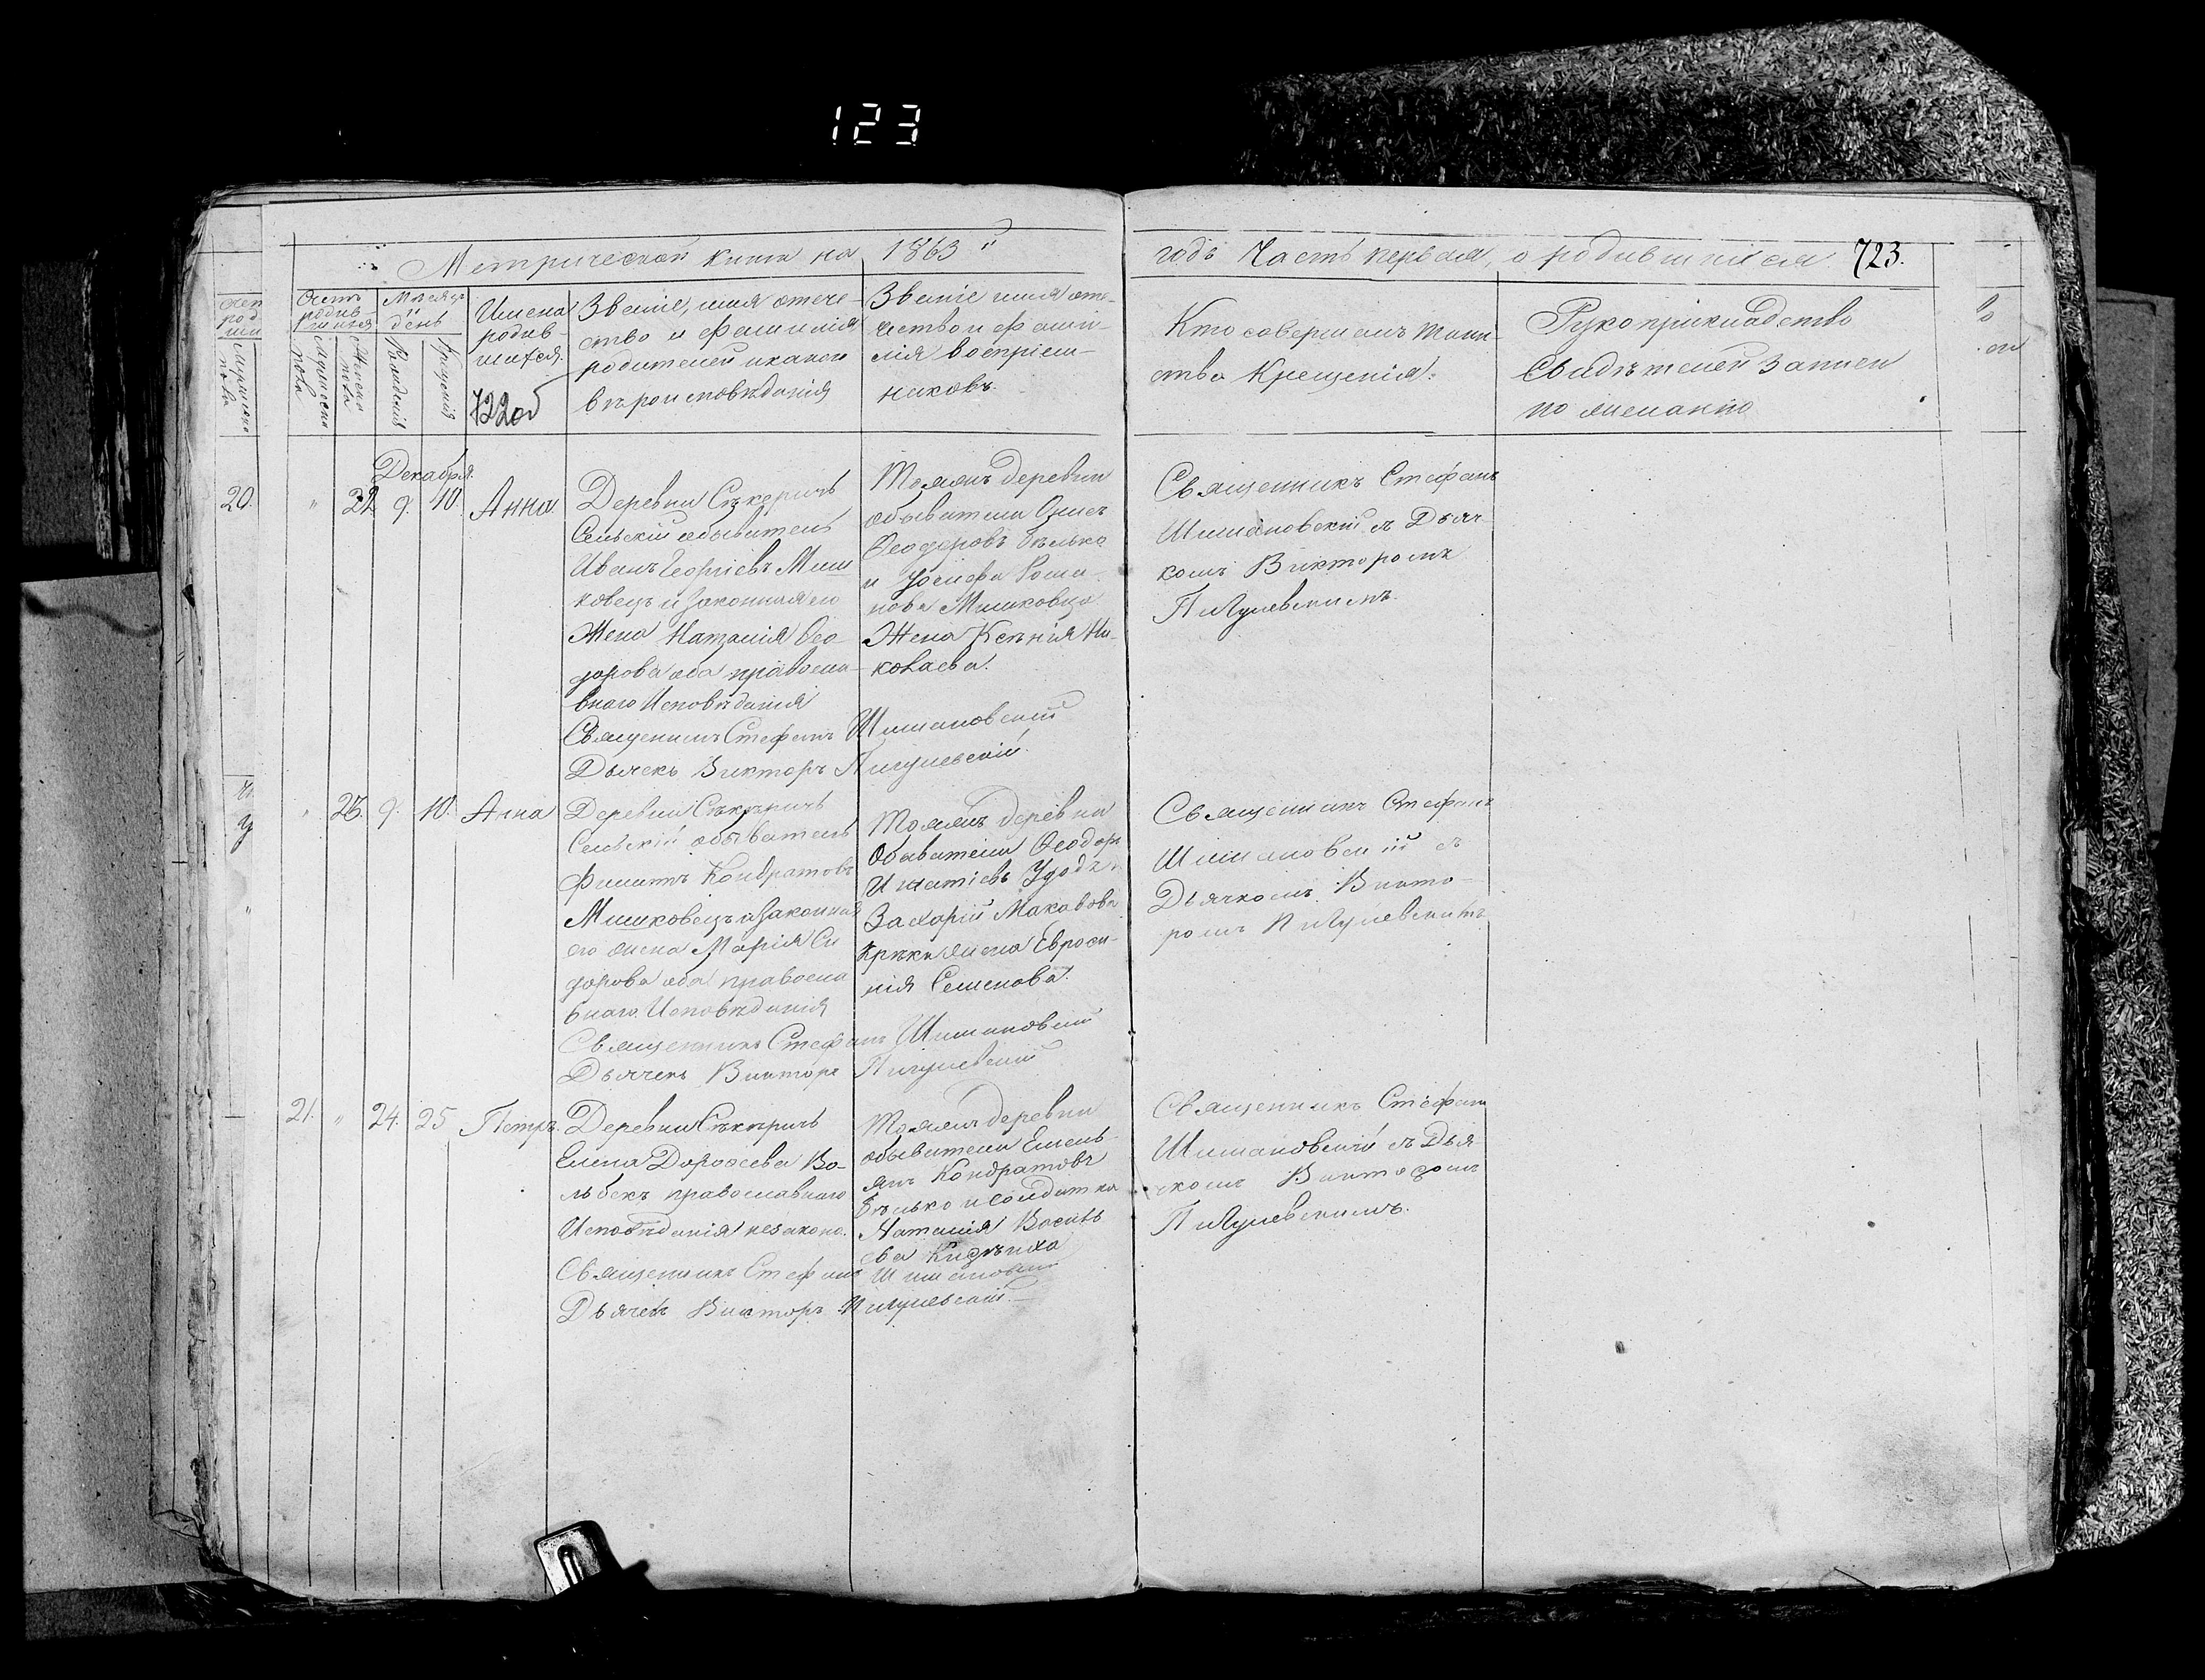 123
Метрической книги на 1863 "
годъ Часть первая, о родившихся 723.
Счетъ родив-шихся
Мужеска пола
Женска пола
Мѣсяцъ и день
Рожденія
Крещенія
Имена
родив-
шихся.
722об
Званіе, имя отече-
ство и фамилія
родителей и какого
вѣроисповѣданія
Званіе имя оте-
чество и фами-
лія воспріем-
никовъ.
Кто совершалъ таин-
ство Крещенія.
Рукоприкладство
Свидѣтелей записи
по желанію
Декабря.
20.
" 22. 9. 10. Анна.
Деревни Сѣкеричъ
Сельскій обыватель
Иванъ Георгіевъ Миш
ковецъ и Законная его
Жена Наталія Ѳео-
дорова оба правосла-
внаго Исповѣданія
Священникъ Стефанъ Шимановскій
Дьячекъ Викторъ Пигулевскій.
Толяжъ деревни
обыватели
Ѳеодоровъ Бѣлько
и Іосифа Рома-
нова Мишковца
Жена Ксенія Ни-
колаева.
Священникъ Стефанъ
Шимановскій съ Дьяч-
комъ Викторомъ
Пигулевскимъ.
" 23. 9. 10. Анна
Деревни Сѣкѣричъ
Сельскій обыватель
Филиппъ Кондратовъ
Мишковецъ и Законная
его жена Марія Си
дорова оба правосла
внаго Исповѣданія
Священникъ Стефанъ Шимановскій
Дьячекъ Викторъ Пигулевскій
Тояжъ деревни
Обыватели Ѳеодоръ
Игнатіевъ
Захарій
жена Евроси-
нія Семенова.
Священникъ Стефанъ
Шимановскій съ
Дьячкомъ Викто-
ромъ Пигулевскимъ
21. " 24. 25 Петръ.
Деревни Сѣкѣричъ
Елена Дороѳеева Во-
льбекъ православнаго
Исповѣданія незакон.
Священникъ Стефанъ Шимановскій
Дьячекъ Викторъ Пигулевскій.
Тояжъ деревни
обыватели Емель-
янъ Кондратовъ
Бѣлько и солдатка
Наталія Василь
ева
Священникъ Стефанъ
Шимановскій съ Дья
чкомъ Викторомъ
Пигулевскимъ.